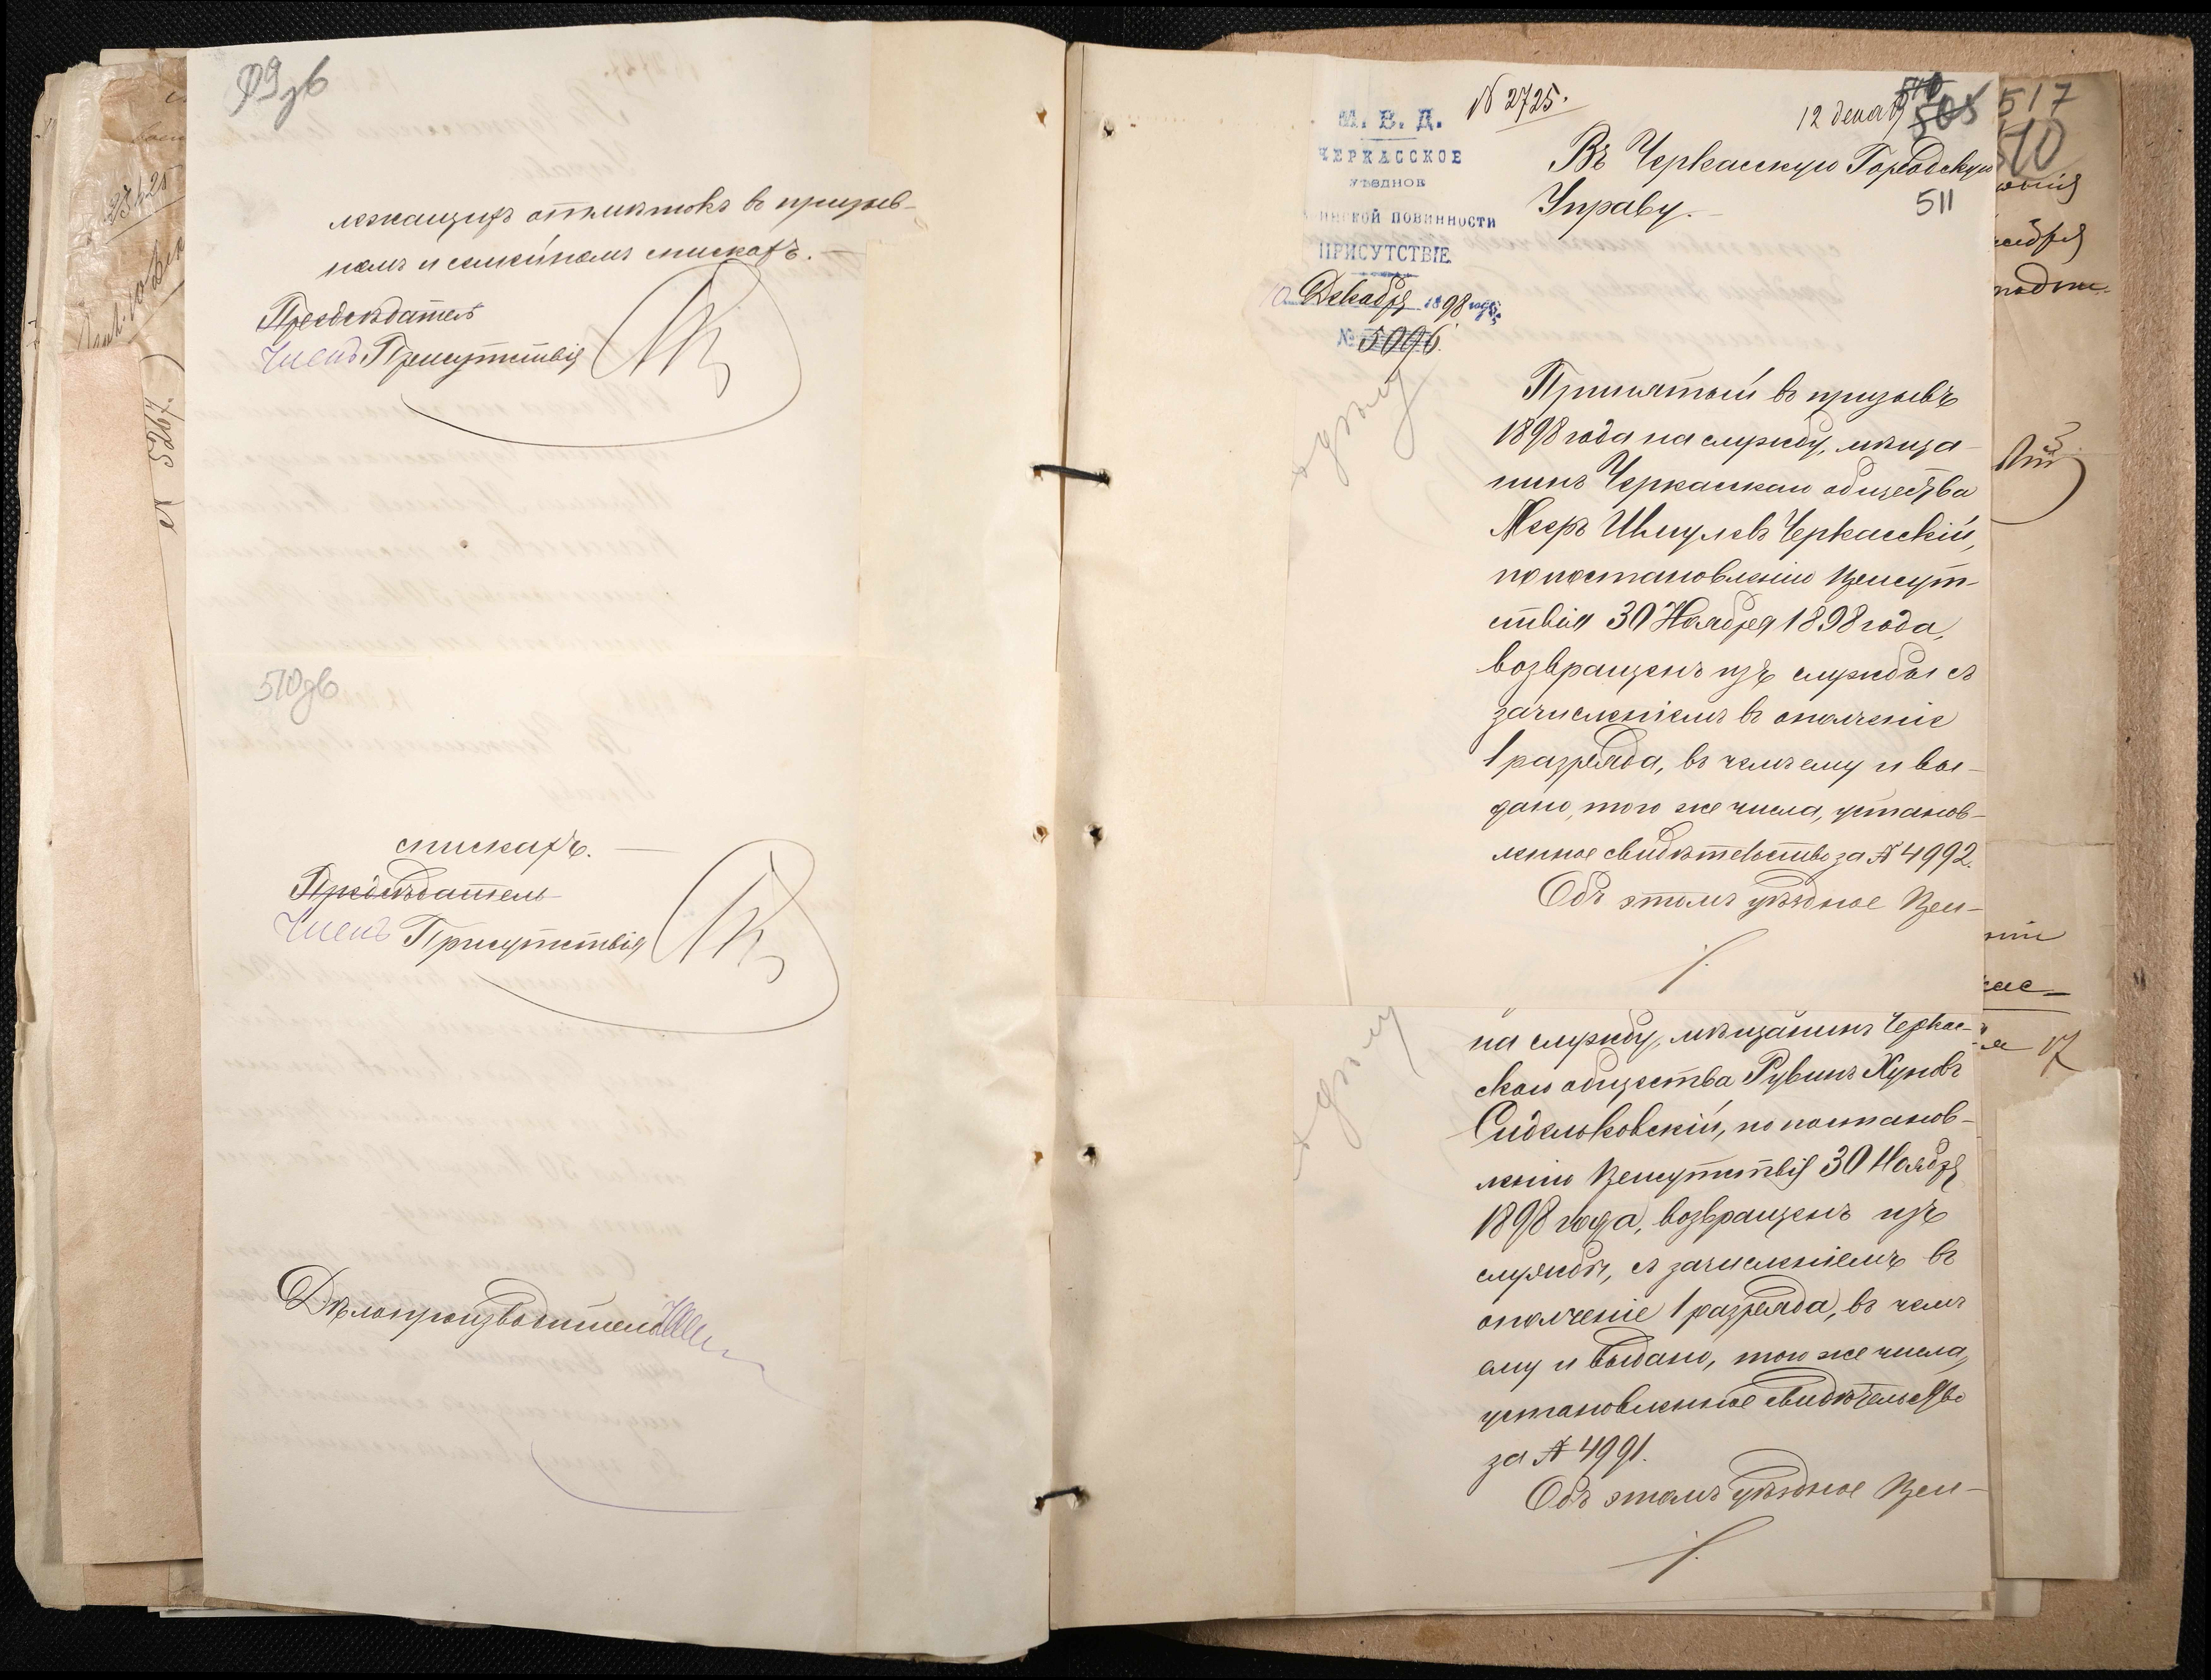 лежащихъ отмѣтокъ въ призыв-
номъ и семейномъ спискахъ.—
Предсѣдатель
Членъ Присутствія
510 зв
спискахъ.—
Предсѣдатель
Членъ Присутствія
Дѣлопроизводитель
№ 5267.
М. В. Д.
ЧЕРКАССКОЕ
УѢЗДНОЕ
ИНСКОЙ ПОВИННОСТИ
ПРИСУТСТВІЕ
Декабря 1898 года
№ 5096.
№ 2725.
12 декаб
505
Въ Черкасскую Городскую
Управу.—
511
Принятый въ призывъ
1898 года на службу, мѣща-
нинъ Черкасскаго общества
Мееръ Шмулевъ Черкасскій,
по постановленію Присут-
ствія 30 Ноября 1898 года,
возвращенъ изъ службы съ
зачисленіемъ въ ополченіе
1 разряда, въ чемъ ему и вы-
дано, того же числа, установ-
ленное свидѣтельство за № 4992.
Объ этомъ уѣздное При-
/.
на службу, мѣщанинъ Черкас-
скаго общества Рувинъ Хуновъ
Сидельковскій, по постанов-
ленію Присутствія 30 Ноября
1898 года, возвращенъ изъ
службы, съ зачисленіемъ въ
ополченіе 1 разряда, въ чемъ
ему и выдано, того же числа,
установленное свидѣтельство
за № 4991.
Объ этомъ уѣздное При-
/.
517
510